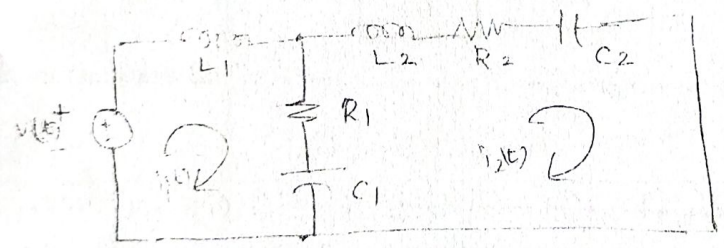 L1
L2
R2
C2
v(t)
+
R1
C1
i1(t)
i2(t)